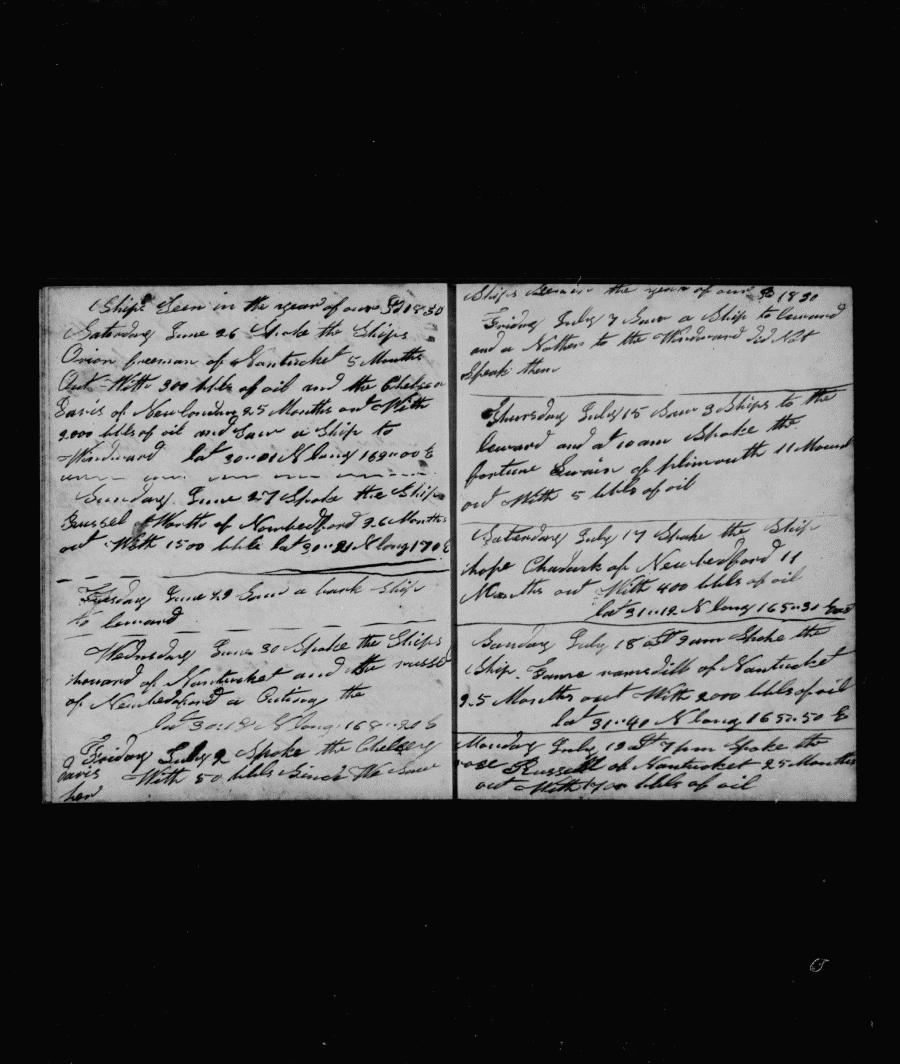 Ships Seen in the year of our Ld 1830
Saturday June 26 Spoke the Ships
Orion freeman of Nantucket 5 Months
Out With 300 bbls of oil and the Chelsea
Davis of New london 25 Months out With
2000 bbls of oil and Saw a Ship to
Windward lat 30..01 N long 169..00 E
Sunday June 27 Spoke the Ship
Russel Worth of Newbedford 36 Months
out With 1500 bbls lat 30..21 N long 170 E
Tuesday June 29 Saw a bark Ship
to leward
Wednsday June 30 Spoke the Ships
howard of Nantucket and the russel
of Newbedford a Cuting the
lat 30..18 N long 168..20 E
Friday July 2 Spoke the Chelsey
Davis With 50 bbls Sinch We Saw
her
Ships Seen in the year of our Ld 1830
Friday July 7 Saw a Ship to leward
and a Nother to the Windward did Not
Speak them
Thursday July 15 Saw 3 Ships to the
leward and at 10 am Spoke the
fortune Swain of plimouth 11 Mounth
out With 5 bbls of oil
Saturday July 17 Spoke the Ship
hope of Newbedford 11
Months out With 400 bbls of oil
lat 31..12 N long 165..30 East
Sunday July 18 at 9 am Spoke the
Ship ramsdill of Nantucket
25 Months out With 2000 bbls of oil
lat 31..40 N long 165..50 E
Monday July 19 at 7 pm Spoke the
rose Russell of Nantucket 25 Months
out With 1700 bbls of oil